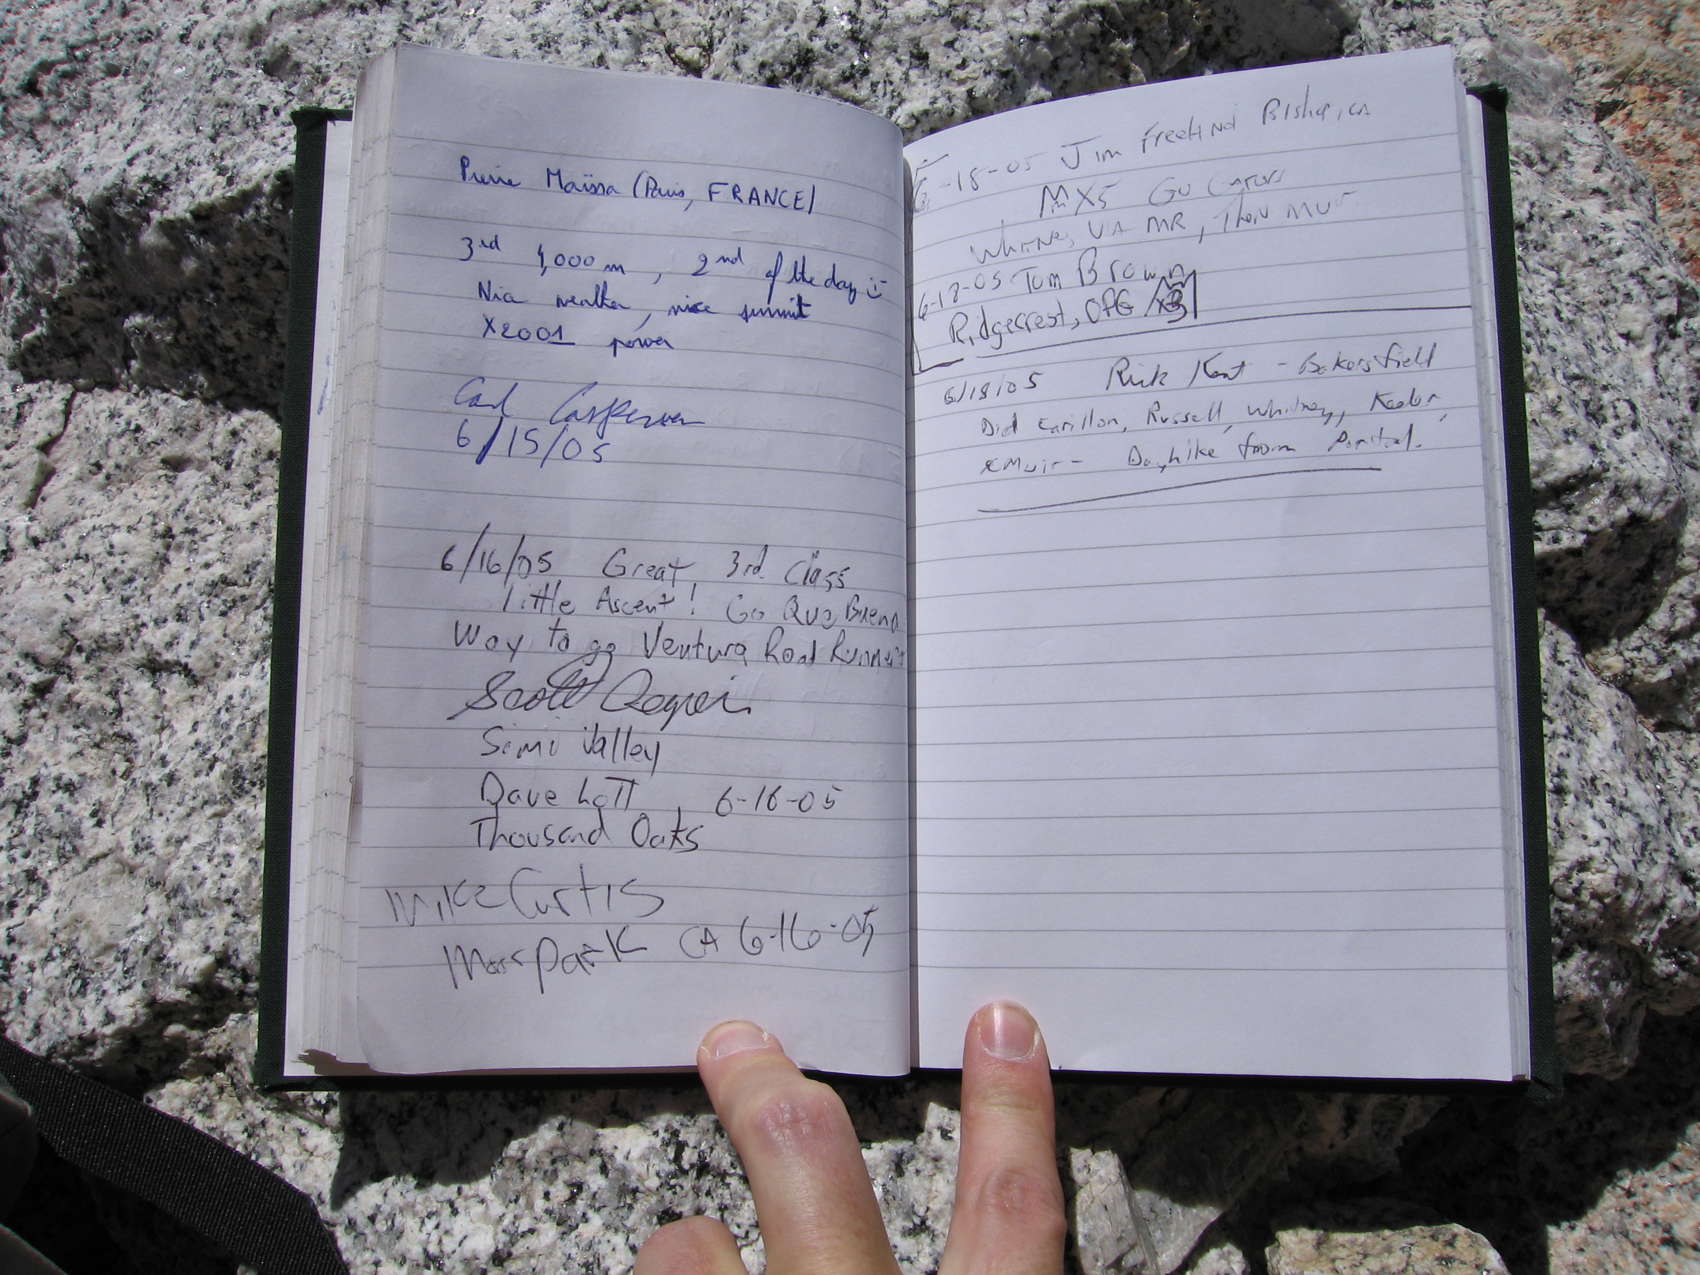 Pierre Maïssa (Paris, FRANCE)
3rd 4,000 m, 2nd of the day :-)
Nice weather, nice summit
X2001 power
Carl Casperson
6/15/05
6/16/05 Great 3rd Class
Little Ascent! Go Que Bueno
Way to go Ventura Road Runners
Scott
Simi Valley
Dave Lott, 6-16-05
Thousand Oaks
Mike Curtis
Moorpark CA 6-16-05
6-18-05 Jim Freeland Bishop, CA
MX5
Whitney VIA MR, Then Muir
6-18-05 Tom Brown
Ridgecrest, OPG X3
6/18/05 Rick Kent - Bakersfield
Did Carillon, Russell, Whitney, Keeler,
& Muir - Dayhike from Portal.